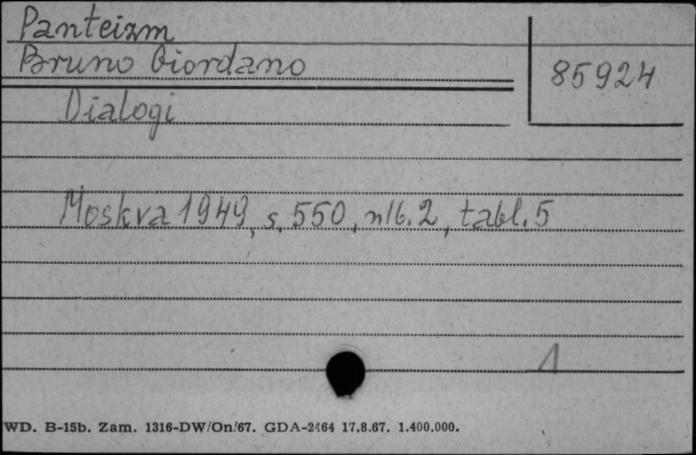 Panteizm
Bruno Giordano
85924
Dialogi
Moskva 1949, s. 550, nlb. 2, tabl. 5
1
WD. B-15b. Zam. 1316-DW/On/67. GDA-2464 17.8.67. 1.400.000.